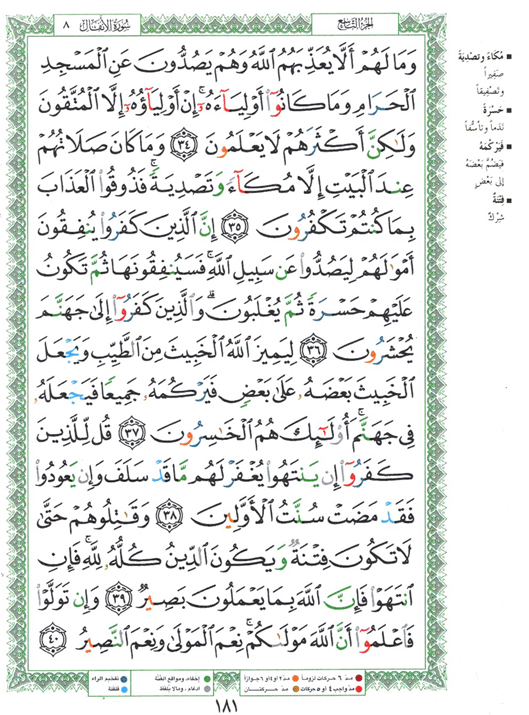 الجزء التاسع
سورة الأنفال ٨
وَمَا لَهُمْ أَلَّا يُعَذِّبَهُمُ ٱللَّهُ وَهُمْ يَصُدُّونَ عَنِ ٱلْمَسْجِدِ
ٱلْحَرَامِ وَمَا كَانُوٓا۟ أَوْلِيَآءَهُۥٓ ۚ إِنْ أَوْلِيَآؤُهُۥٓ إِلَّا ٱلْمُتَّقُونَ
وَلَٰكِنَّ أَكْثَرَهُمْ لَا يَعْلَمُونَ ٣٤ وَمَا كَانَ صَلَاتُهُمْ
عِندَ ٱلْبَيْتِ إِلَّا مُكَآءً وَتَصْدِيَةً ۚ فَذُوقُوا۟ ٱلْعَذَابَ
بِمَا كُنتُمْ تَكْفُرُونَ ٣٥ إِنَّ ٱلَّذِينَ كَفَرُوا۟ يُنفِقُونَ
أَمْوَٰلَهُمْ لِيَصُدُّوا۟ عَن سَبِيلِ ٱللَّهِ ۚ فَسَيُنفِقُونَهَا ثُمَّ تَكُونُ
عَلَيْهِمْ حَسْرَةً ثُمَّ يُغْلَبُونَ ۗ وَٱلَّذِينَ كَفَرُوٓا۟ إِلَىٰ جَهَنَّمَ
يُحْشَرُونَ ٣٦ لِيَمِيزَ ٱللَّهُ ٱلْخَبِيثَ مِنَ ٱلطَّيِّبِ وَيَجْعَلَ
ٱلْخَبِيثَ بَعْضَهُۥ عَلَىٰ بَعْضٍ فَيَرْكُمَهُۥ جَمِيعًا فَيَجْعَلَهُۥ
فِى جَهَنَّمَ ۚ أُو۟لَٰٓئِكَ هُمُ ٱلْخَٰسِرُونَ ٣٧ قُل لِّلَّذِينَ
كَفَرُوٓا۟ إِن يَنتَهُوا۟ يُغْفَرْ لَهُم مَّا قَدْ سَلَفَ وَإِن يَعُودُوا۟
فَقَدْ مَضَتْ سُنَّتُ ٱلْأَوَّلِينَ ٣٨ وَقَٰتِلُوهُمْ حَتَّىٰ
لَا تَكُونَ فِتْنَةٌ وَيَكُونَ ٱلدِّينُ كُلُّهُۥ لِلَّهِ ۚ فَإِنِ
ٱنتَهَوْا۟ فَإِنَّ ٱللَّهَ بِمَا يَعْمَلُونَ بَصِيرٌ ٣٩ وَإِن تَوَلَّوْا۟
فَٱعْلَمُوٓا۟ أَنَّ ٱللَّهَ مَوْلَىٰكُمْ ۚ نِعْمَ ٱلْمَوْلَىٰ وَنِعْمَ ٱلنَّصِيرُ ٤٠
■ مُكَاءً وتَصْدِيَةً
صَفِيراً
وتَصْفِيقاً
■ حَسْرَةً
نَدَماً وتأسُّفاً
■ فَيَرْكُمَهُ
فَيَضُمَّ بَعْضَهُ
إلى بَعْضٍ
■ فِتْنَةٌ
شِرْكٌ
مدّ ٦ حركات لزوماً
مدّ ٢ أو ٤ أو ٦ جوازاً
إخفاء، ومواقع الغُنَّة
تفخيم الراء
مدّ واجب ٤ أو ٥ حركات
مدّ حركتان
ادغام، وما لا يُلفظ
قلقلة
١٨١